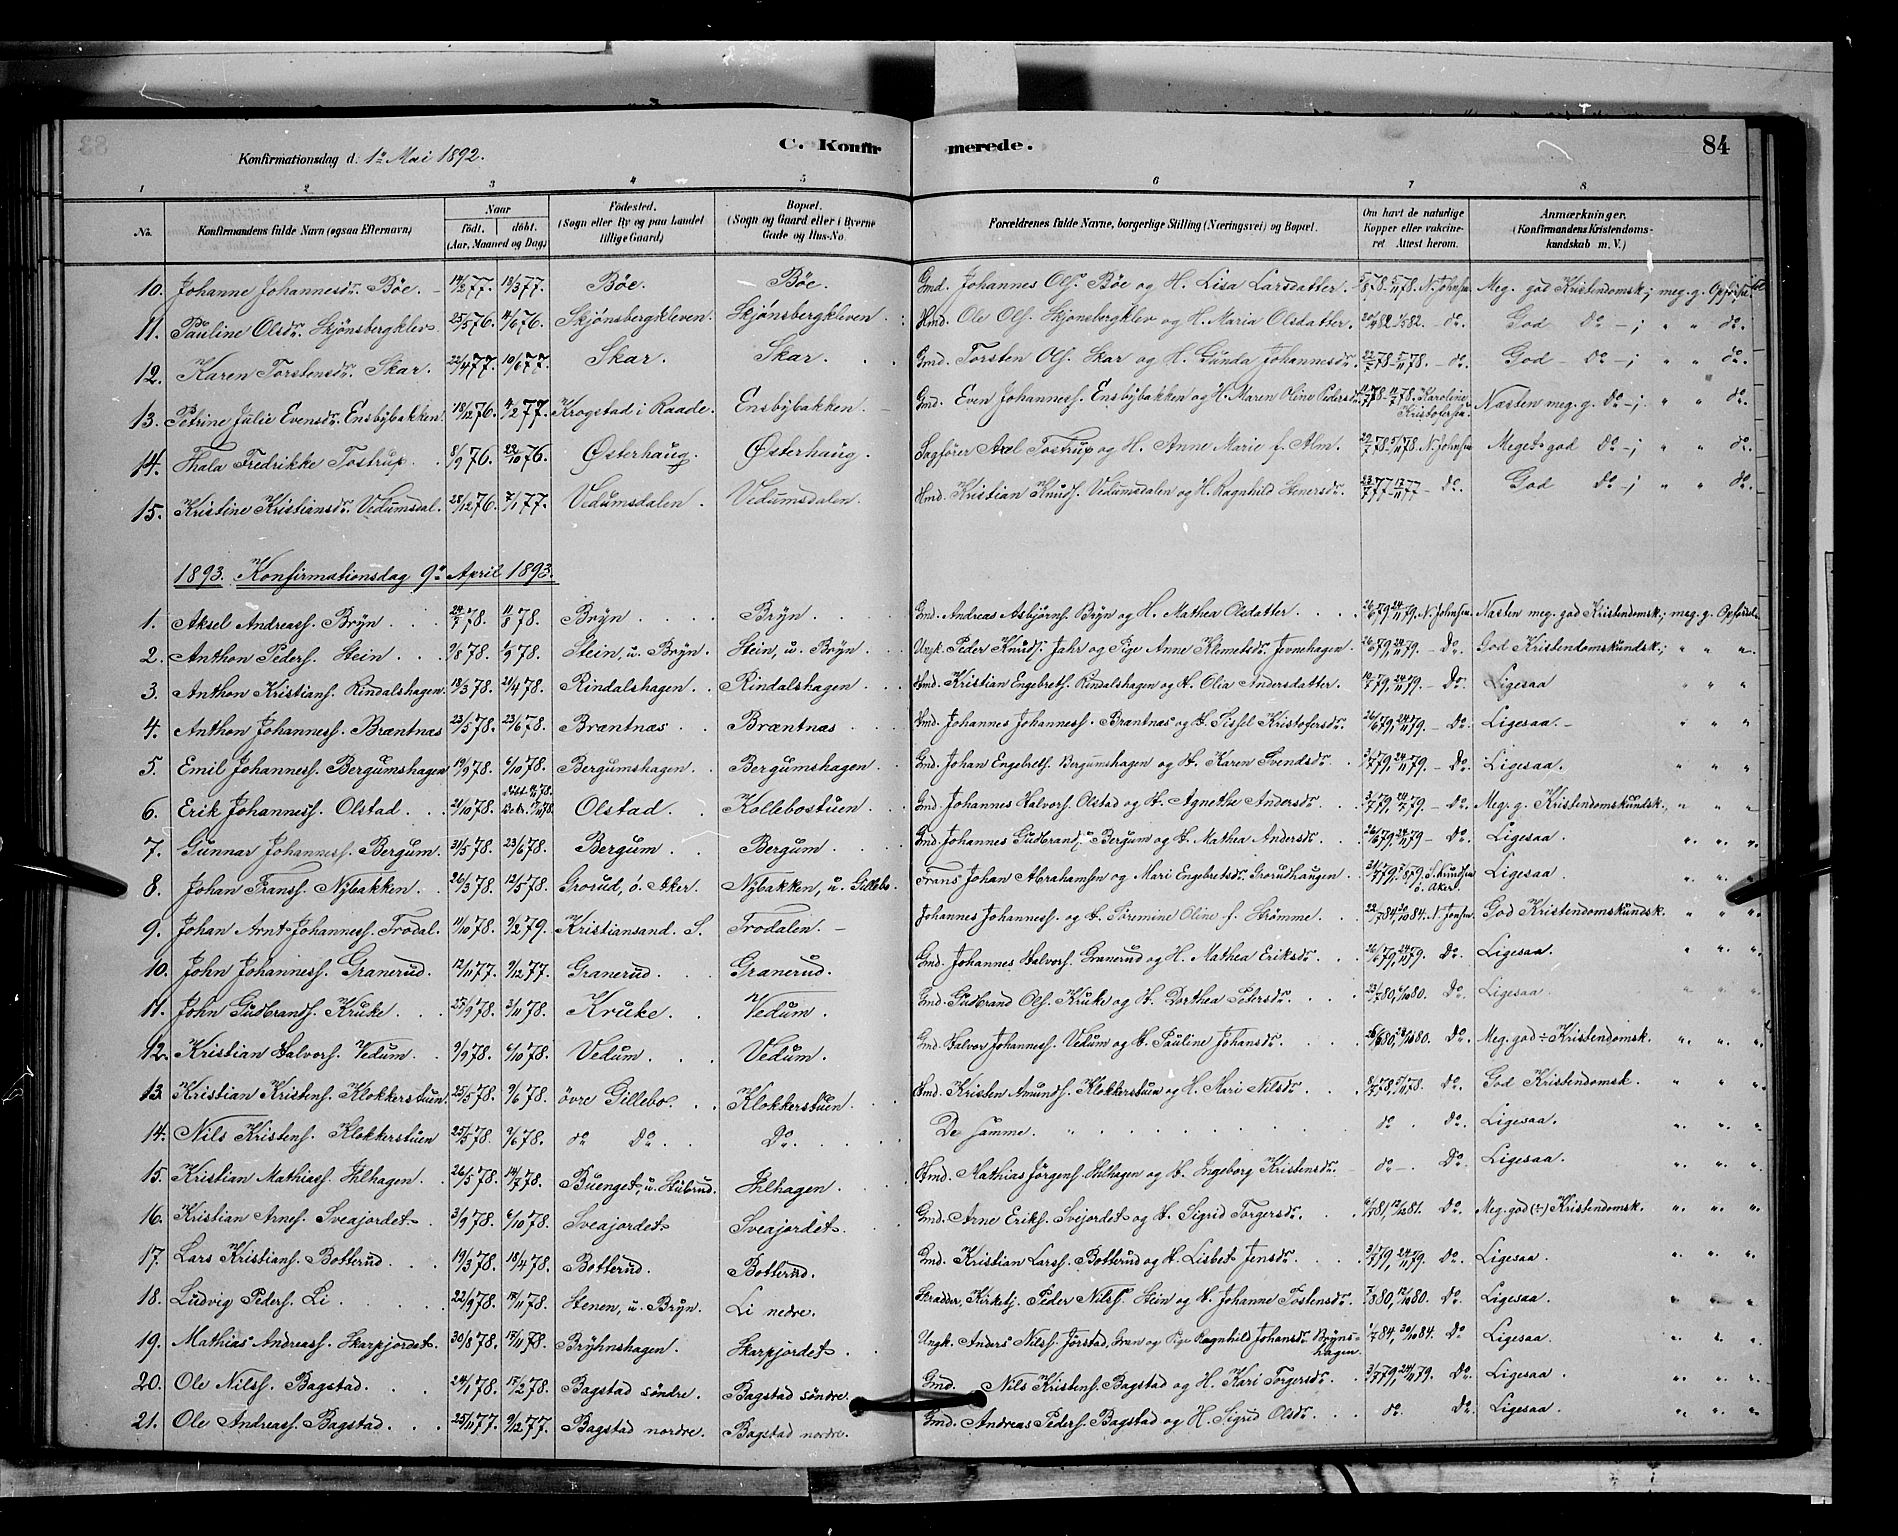 84
C. Konfirmerede.
Konfirmationsdag d. 1ᵒ Mai 1892.
1 2 3 4 5 6 7 8
No. Konfirmandens fulde Navn (ogsaa Efternavn) Naar født. døbt. (Aar, Maaned og Dag) Fødested. (Sogn eller By og paa Landet tillige Gaard) Bopæl. (Sogn og Gaard eller i Byerne Gade og Hus-No. Forældrenes fulde Navne, borgerlige Stilling (Næringsvei) og Bopæl. Om havt de naturlige Kopper eller vaccineret Attest herom. Anmærkninger. (Konfirmandens Kristendomskundskab m. V.)
10. Johanne Johannesdr. Böe. 14/2 77. 18/3 77. Böe. Böe. Gmd. Johannes Ols. Böe og H. Lisa Larsdatter. N. Johnsen Meg. god Kristendomsk.; meg. g. Opførsel
11. Pauline Olsdr. Skjönsbergklev. 25/5 76. 11/6 76. Skjönsbergkleven. Skjönsbergkleven. Hmd. Ole Ols. Skjönsbergklev og H. Maria Olsdatter. - do. God Do -; " " do.
12. Karen Torstensdr. Skar. 22/4 77. 10/6 77. Skar. Skar. Gmd. Torsten Ols. Skar og H. Gunda Johannesdr. - do. God - Do -; " " do.
13. Petrine Julie Evensdr. Ensbybakken. 18/12 76. 4/2 77. Krogstad i Raade. Ensbybakken. Gmd. Even Johanness. Ensbybakken og H. Maren Oline Pedersdr. Karoline Kristofersen. Næsten meg. g. Do -; " " do.
14. Thala Fredrikke Tostrup. 8/9 76. 22/10 76. Østerhaug. Østerhaug. Sagfører Axel Tostrup og H. Anne Marie f. Alm. N. Johnsen Meget god do -; " " do.
15. Kristine Kristiansdr. Vedumsdal. 28/12 76. 7/1 77. Vedumsdalen. Vedumsdalen. Hmd. Kristian Knuds. Vedumsdalen og H. Ragnhild Stenersdr. - do. God do -; " " do.
1893. Konfirmationsdag 9ᵒ April 1893.
1. Aksel Andreass. Bryn 24/7 78. 11/8 78. Bryn. Bryn. Gmd. Andreas Asbjörns. Bryn og H. Mathea Olsdatter. N. Johnsen Næsten meg. god Kristendomsk.; meg. g. Opförsel.
2. Anthon Peders. Stein. 9/8 78. 1/9 78. Stein, u. Bryn. Stein, u. Bryn. Ungk. Peder Knuds. Jahr og Pige Anne Klemetsdr. Jevnehagen. 26/6 79, 24/11 79. - Do. God Kristendomskundsk.; " " "
3. Anthon Kristians. Rindalshagen. 18/3 78. 21/4 78. Rindalshagen. Rindalshagen. Hmd. Kristian Engebrets. Rindalshagen og H. Olia Andersdatter. - Do. Ligesaa " " "
4. Anthon Johanness. Bræntnæs 23/5 78. 23/6 78. Bræntnæs. Bræntnæs. Hmd. Johannes Johanness. Bræntnæs og H. Sissel Kristofersdr. 26/6 79, 24/11 79. - Do. Ligesaa. - " " "
5. Emil Johanness. Bergumshagen 19/9 78. 6/10 78. Bergumshagen. Bergumshagen. Gmd. Johan Engebrets. Bergumshagen og H. Karen Svendsdr. 3/7 79, 24/11 79. - Do. Ligesaa. " " "
6. Erik Johanness. Olstad. 21/10 78. 17/11 78. Olstad. Kollebostuen. Gmd. Johannes Halvors. Olstad og H. Agnethe Andersdr. - Do. Meg. g. Kristendomskundsk. " " "
7. Gunnar Johanness. Bergum. 31/5 78. 23/6 78. Bergum. Bergum. Gmd. Johannes Gudbrands. Bergum og H. Mathea Andersdr. 26/6 79, 24/11 79 - Do. Ligesaa. " " "
8. Johan Franss. Nybakken. 26/3 78. 12/5 78. Grorud, ö. Aker. Nybakken, u. Gillebo. Frans Johan Abrahamsen og Mari Engebretsdr. Grorudhaugen. S. Knudsen ö. Aker. Ligesaa. " " "
9. Johan Arnt Johanness. Trodal. 11/10 78. 9/2 79. Kristiansand. S. Trodalen. Johannes Johanness. og H. Söremine Oline f. Strömme. N. Jonsen. God Kristendomskundsk. " " "
10. John Johanness. Granerud. 12/11 77. 9/12 77. Granerud. Granerud. Gmd. Johannes Halvors. Granerud og H. Mathea Eriksdr. 26/6 79, 24/11 79. Do. Ligesaa. " " "
11. John Gudbrands. Kruke. 25/9 78. 3/11 78. Kruke. Vedum. Gmd. Gudbrand Ols. Kruke og H. Dorthea Petersdr. Do. Ligesaa. " " "
12. Kristian Halvors. Vedum. 9/9 78. 6/10 78. Vedum. Vedum. Gmd. Halvor Johanness. Vedum og H. Pauline Johansdr. Do. Meg. god ÷ Kristendomsk. " " "
13. Kristian Kristens. Klokkerstuen 25/5 78. 9/6 78. övre Gillebo. Klokkerstuen. Hmd. Kristen Amunds. Klokkerstuen og H. Mari Nilsdr. Do. God Kristendomsk. " " "
14. Nils Kristens. Klokkerstuen 25/5 78. 9/6 78. do Do. Do. De samme. do. Do. Ligesaa. " " "
15. Kristian Mathiass. Ihlhagen. 26/5 78. 14/7 78. Buenget, u. Stubrud. Ihlhagen. Hmd. Mathias Jörgens. Ihlhagen og H. Ingeborg Kristensdr. - do -. Do. Ligesaa. " " "
16. Kristian Arnes. Sveajordet. 3/9 78. 6/10 78. Sveajordet. Sveajordet. Gmd. Arne Eriks. Svejordet og H. Sigrid Torgersdr. Do. Meg. god (÷) Kristendomsk. " " "
17. Lars Kristians. Botterud. 19/3 78. 18/4 78. Botterud. Botterud. Gmd. Kristian Larss. Botterud og H. Lisbet Jensdr. 3/7 79, 24/11 79. Do. Ligesaa. " " "
18. Ludvig Peders. Li. 22/9 78. 17/11 78. Stenen, u. Bryn. Li nedre. Skrædder, Kirketj. Peder Nilss. Stein og H. Johanne Tostensdr. Do. Ligesaa. " " "
19. Mathias Andreass. Skarpjordet. 30/8 78. 17/11 78. Bryhnshagen. Skarpjordet. Ungk. Anders Nilss. Jorstad, Gran og Pige Ragnhild Johansdr. Brynshagen. Do Ligesaa. " " "
20. Ole Nilss. Bagstad. 24/1 78. 17/2 78. Bagstad söndre. Bagstad söndre. Gmd. Nils Kristens. Bagstad og H. Kari Torgersdr. 3/7 79, 24/11 79. Do. Ligesaa. " " "
21. Ole Andreass. Bagstad. 25/11 77. 9/12 77. Bagstad nordre. Bagstad nordre. Gmd. Andreas Peders. Bagstad og H. Sigrid Olsdr. do. Do. Ligesaa. " " "